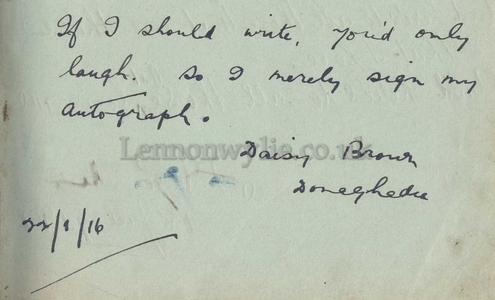 If I should write, you'd only
laugh. so I merely sign my
autograph.
Lennonwylie.co.uk
Daisy Brown
Donaghedee
22/9/16